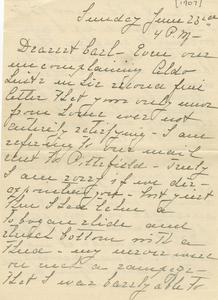 [1907]
Sunday June 23rd
4 P.M.
Dearest Carl - Even our
uncomplaining Aldo
in his second
letter that your only news
from were not
entirely satisfying - I am
referring to our mail
sent to Pittsfield - Truly
I am sorry if we dis-
appointed you - but just
then I had taken a
toboggan slide and
struck bottom with a
thud - my nerves were
on such a rampage
that I was barely able to